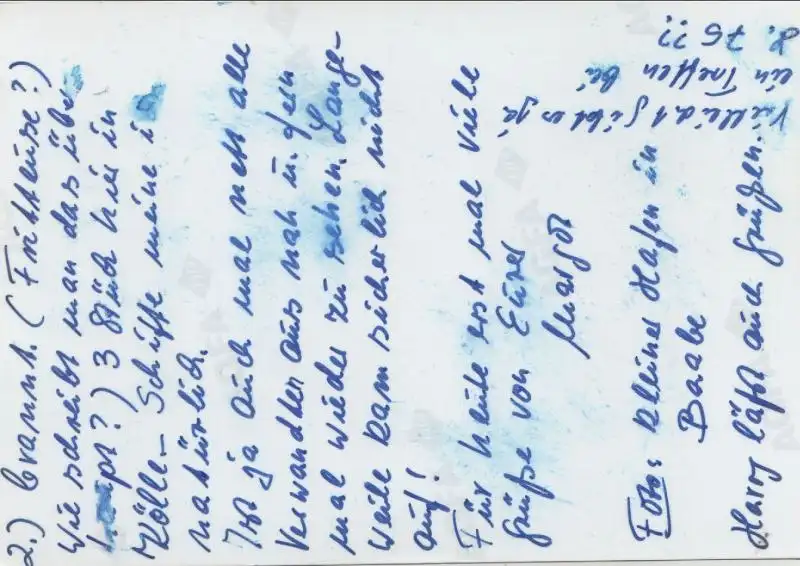 2.) brannt. (Fritteuse?)
Wie schreibt man das über-
haupt?) 3 Stück hier in
Kölle – Schiffe meine i
natürlich.
Ist ja auch mal nett alle
Verwandten aus nah u. fern
mal wieder zu sehen. Lange-
weile kam sicherlich nicht
auf!
Für heute erst mal viele
Grüße von Eurer
Margot
Foto: kleiner Hafen in
Baabe
Harry läßt auch grüßen.
Vielleicht gibt es ja
ein Treffen bei
75??